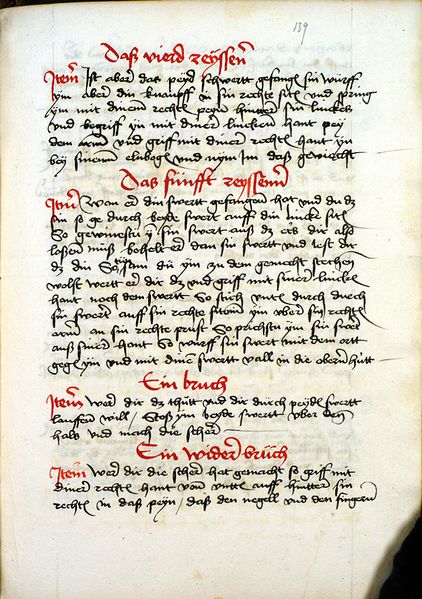 139
Daß vierd zeyssen
Item Ist aber das peyd schwertt gefangen sin würff
ym aber din knaupff in sin rechte siten und spring
ym mit dinem rechten peyn hinder sin lincks
und begriff yn mit diner lincken hant pey
dem arm und griff mit diner rechten hant yn
bey sinem elnbogen und nym im daß gewicht
Das fünfft zeyssen
Item Wan er din swert gefangen hat und du dz
sin so ge durch beyde swert auff din lincke siten
So gewinestu ym sin swert auß dz ers dir also
loßen muß behelt er dan sin swertt und lest dir
dz din So tustu du ym zu dem gemecht stechen
wolst wertt er dir dz und griff mit siner lincken
hant noch dem swertt So stich unten durch durch
sin swert auff sin rechte siten ym uber sin rechten
arm an sin rechte prust So prichstu ym sin swert
auß siner hant So würff sin swert mit dem ortt
gegen ym und mit dinem swertt vall in die obern hütt
Ein bruch
Item wer dir dz thütt und dir durch peyde swertt
lauffen will / Stoß ym beyde swertt uber den
hals und mach die scher
Ein wider brüch
Item wer dir die scher hat gemacht so griff mit
diner rechten hant von unten auff hinder sin
rechten in daß peyn / daß den negell und den fingern